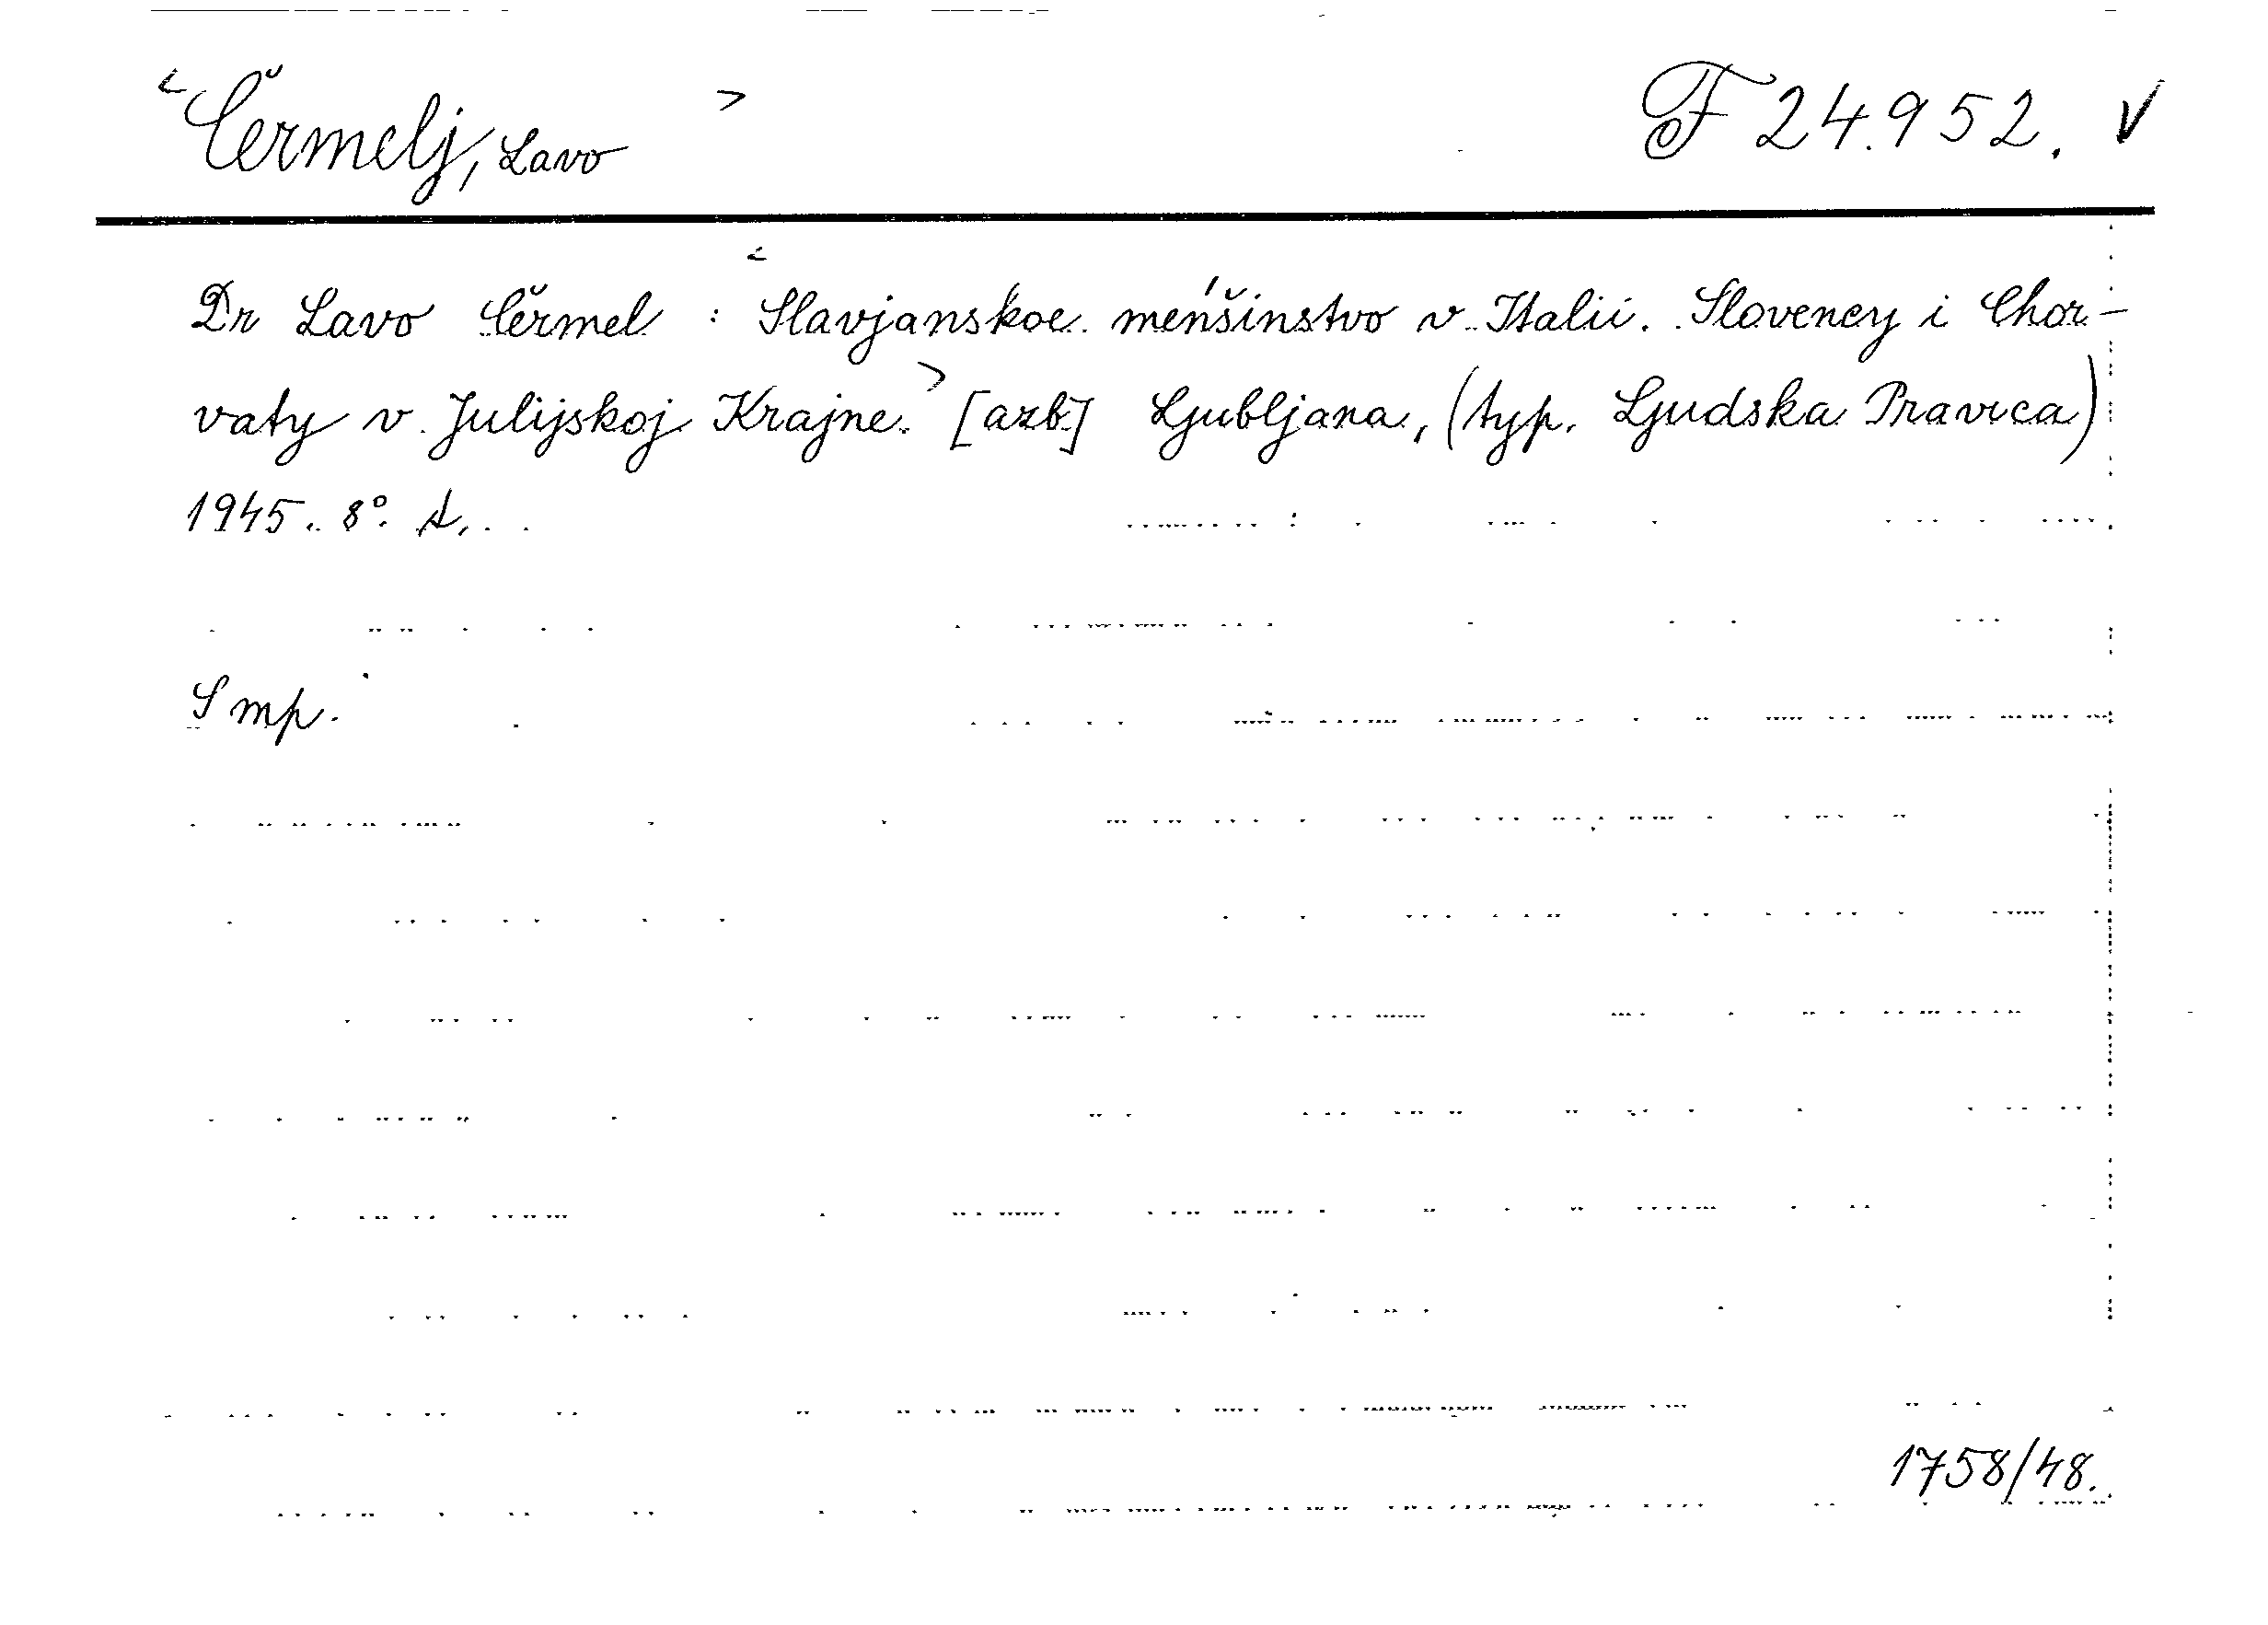 <Čermelj, Lavo> F 24.952. V
Dr Lavo Čermel : <Slavjanskoe meńšinstvo v Italii. Slovency i Chor-
vaty v Julijskoj Krajne.> [azb] Ljubljana, (typ. Ljudska Pravica)
1945. 8°. A.
S mp.
1758/48.